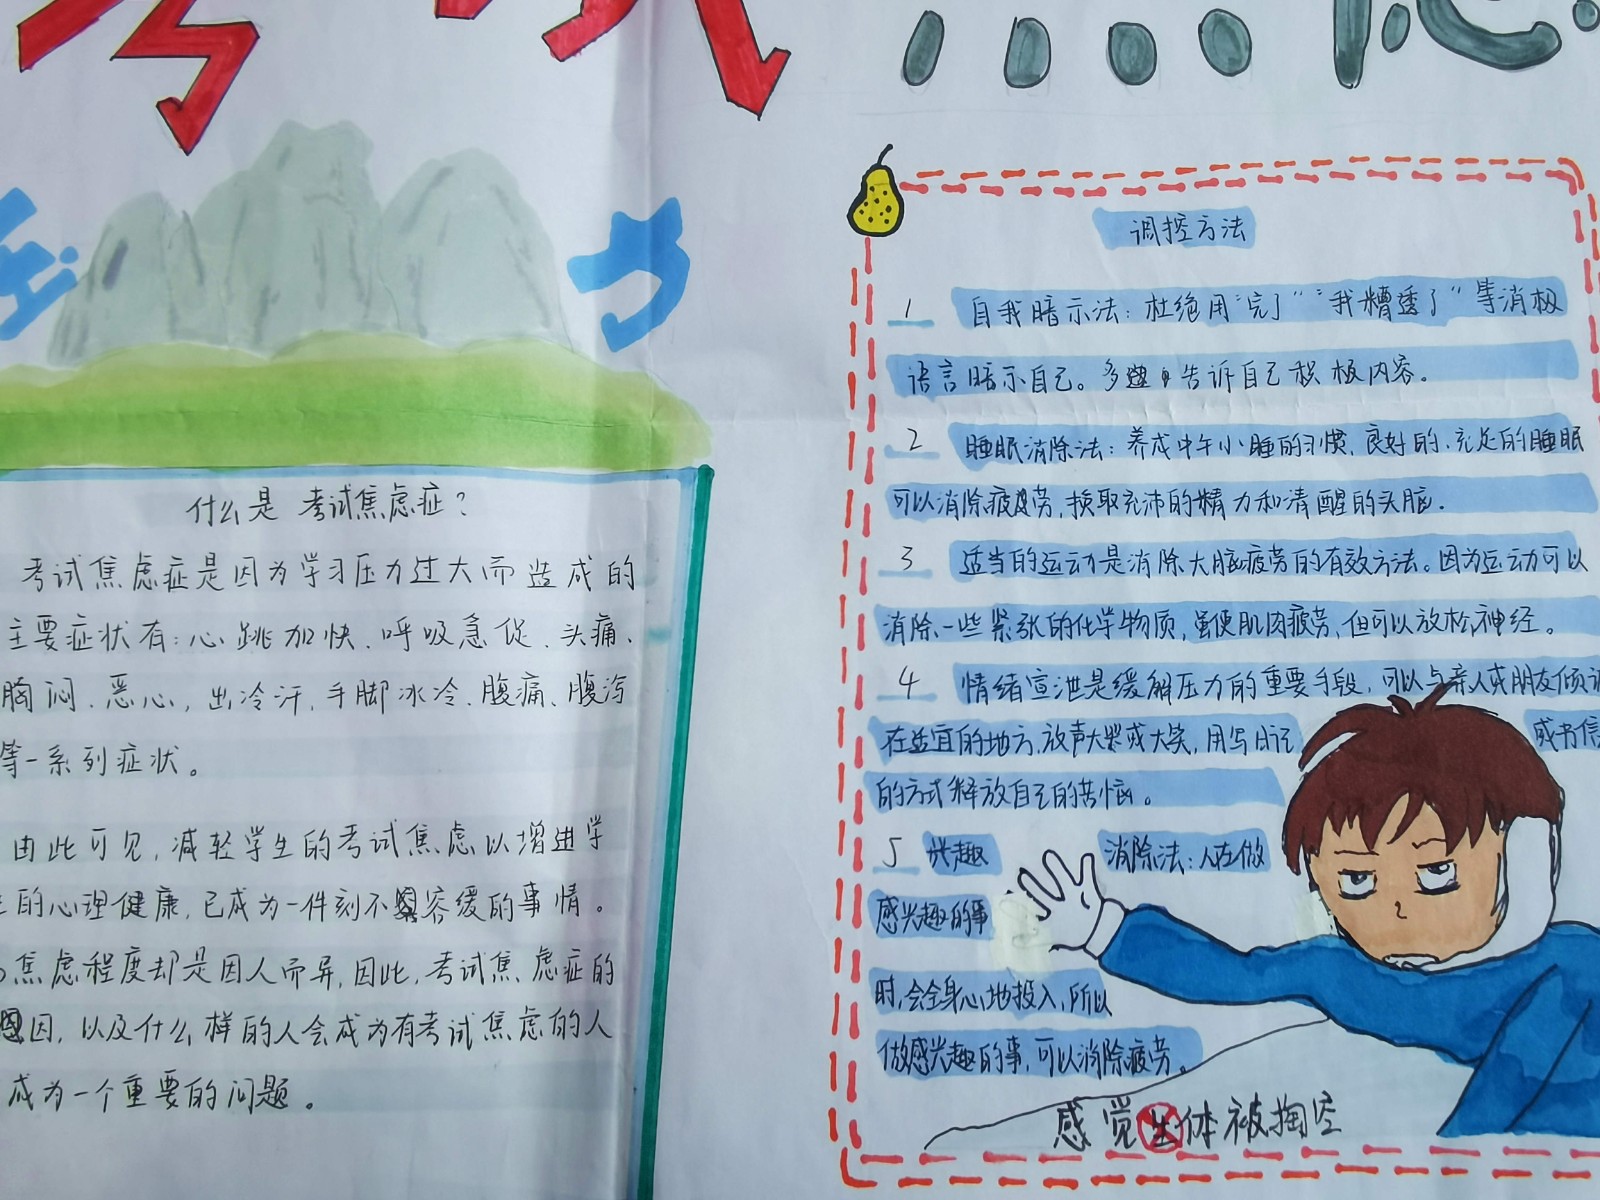 什么是考试焦虑症？
考试焦虑症是因为学习压力过大而造成的
主要症状有：心跳加快、呼吸急促、头痛、
胸闷、恶心，出冷汗，手脚冰冷、腹痛、腹泻
等一系列症状。
由此可见，减轻学生的考试焦虑以增进学
的心理健康，已成为一件刻不容缓的事情。
焦虑程度却是因人而异，因此，考试焦虑症的
因，以及什么样的人会成为有考试焦虑的人
成为一个重要的问题。
调控方法
1 自我暗示法：杜绝用“完了”“我糟透了”等消极
语言暗示自己。多 告诉自己积极内容。
2 睡眠消除法：养成中午小睡的习惯，良好的、充足的睡眠
可以消除疲劳，换取充沛的精力和清醒的头脑．
3 适当的运动是消除大脑疲劳的有效方法。因为运动可以
消除一些紧张的化学物质，虽使肌肉疲劳，但可以放松神经。
4 情绪宣泄是缓解压力的重要手段，可以与亲人或朋友倾
在适宜的地方，放声大哭或大笑，用写日记 或书信
的方式释放自己的苦恼。
5 兴趣消除法：人在做
感兴趣的事
时，会全身心地投入，所以
做感兴趣的事，可以消除疲劳。
感觉体被掏空